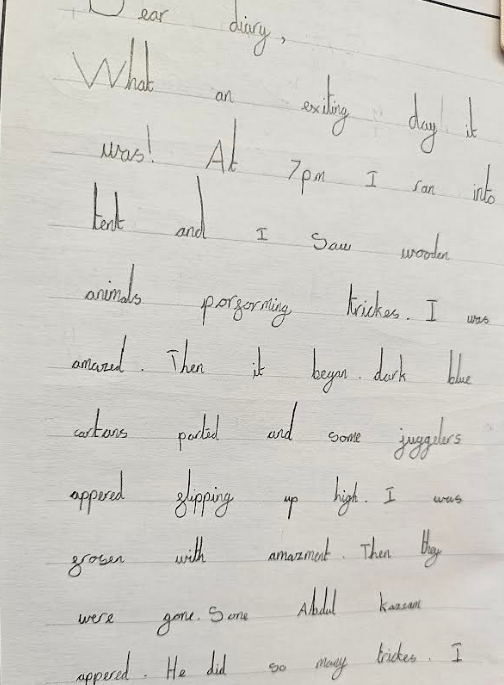 Dear diary,
What an exiting day it
was! At 7pm I ran into
tent and I Saw wooden
animals porforming trickes. I was
amazed. Then it began. dark blue
cartans parted and some juggelers
appered flipping up high. I was
frosen with amazment. Then they
were gone. Abdul
appered. He did so many trickes. I